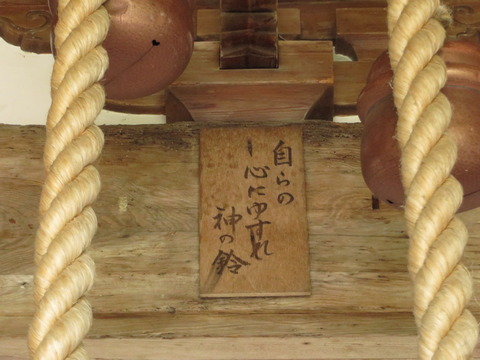 自らの
心にゆすれ
神の鈴